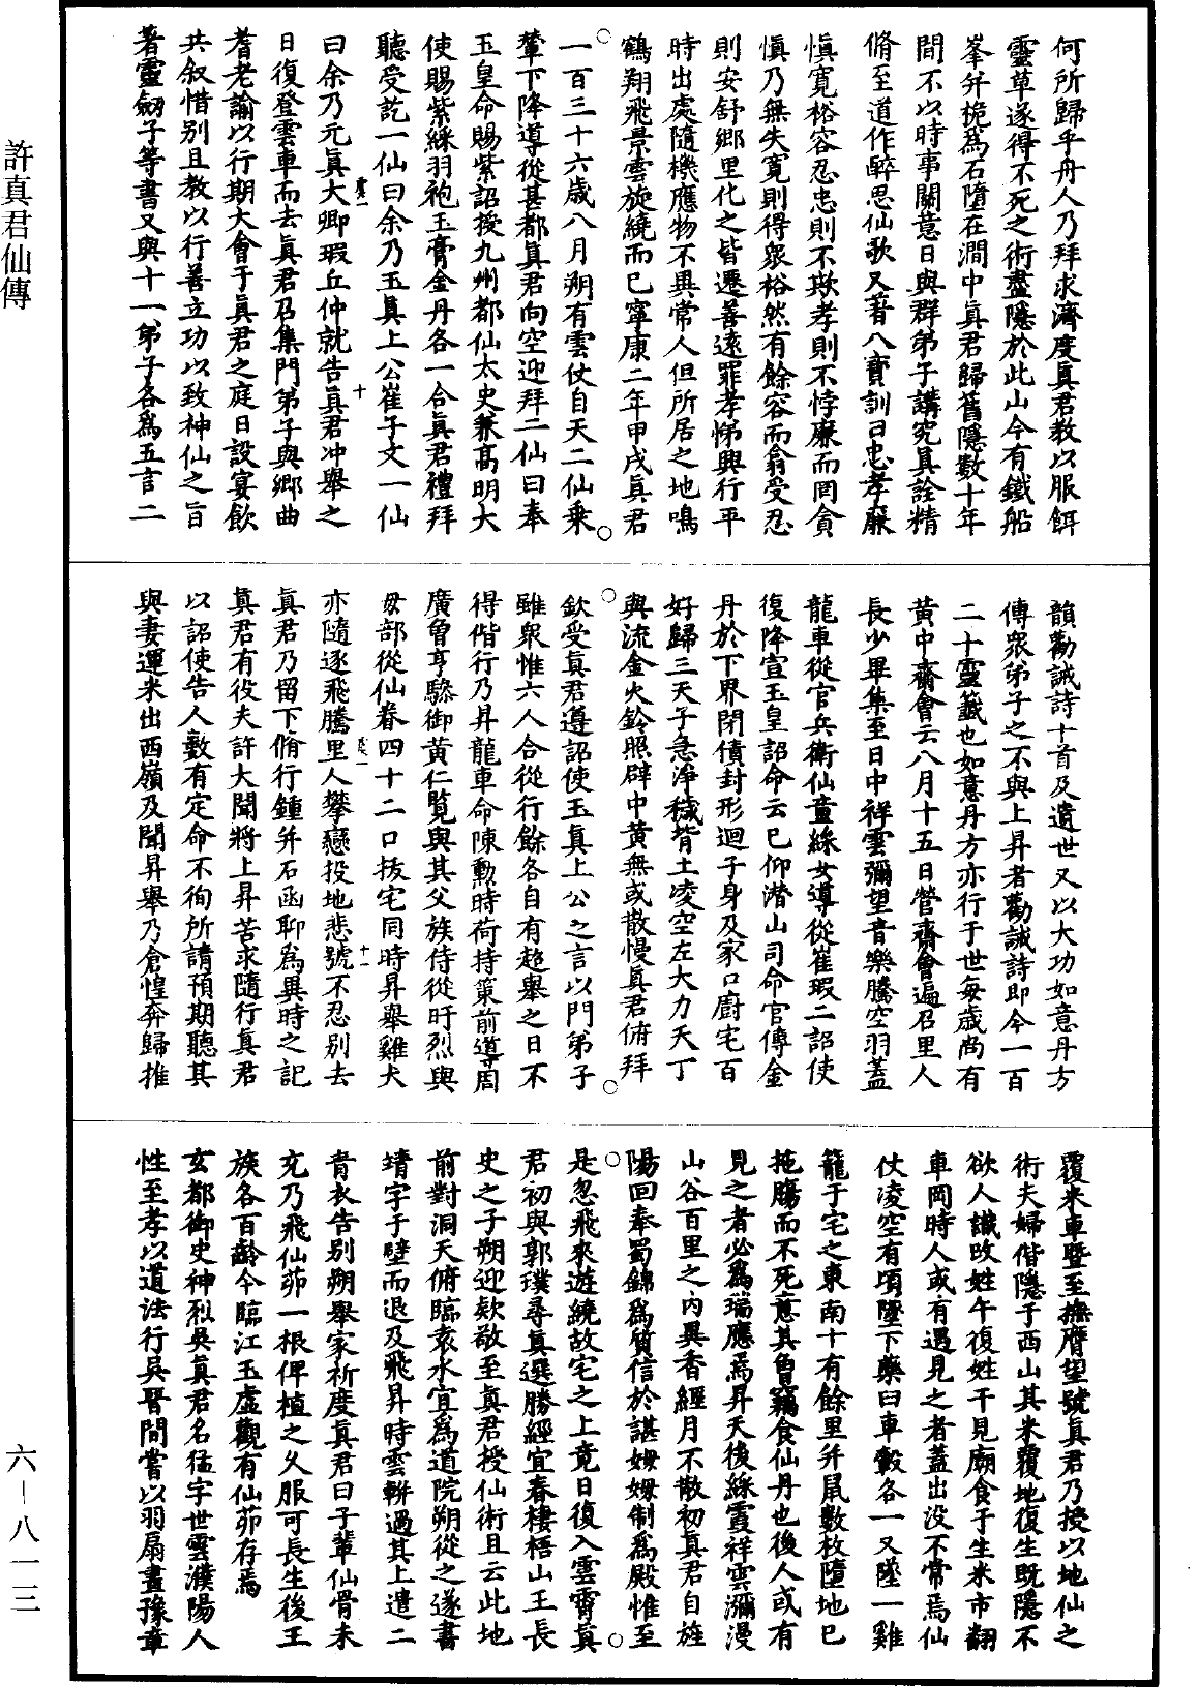 何所歸乎舟人乃拜求濟度真君教以服餌
靈草遂得不死之術盡隱於此山今有鐵船
峯并桅爲石墮在澗中真君歸舊隱數十年
間不以時事關意日與群弟子講究真詮精
脩至道作醉思仙歌又著八寶訓曰忠孝廉
愼寬裕容忍忠則不欺孝則不悖廉而罔貪
愼乃無失寬則得眾裕然有餘容而翕受忍
則安舒鄉里化之皆遷善遠罪孝悌興行平
時出處隨機應物不異常人但所居之地鳴
鶴翔飛景雲旋繞而已寧康二年甲戌真君
一百三十六歲八月朔有雲仗自天二仙乗
輦下降導從甚都真君向空迎拜二仙曰奉
玉皇命賜紫詔授九州都仙太史兼高明大
使賜紫綵羽袍玉膏金丹各一合真君禮拜
聽受訖一仙曰余乃玉真上公崔子文一仙
曰余乃元真大卿瑕丘仲就告真君冲舉之
日復登雲車而去真君召集門弟子與鄉曲
耆老諭以行期大會于真君之庭日設宴飲
共叙惜别且教以行善立功以致神仙之旨
著靈劒子等書又與十一弟子各爲五言二
韻勸誡詩十首及遺世又以大功如意丹方
傳眾弟子之不與上昇者勸誡詩即今一百
二十靈籤也如意丹方亦行于世每歲尚有
黃中齋會云八月十五日營齋會遍召里人
長少畢集至日中祥雲彌望音樂騰空羽蓋
龍車從官兵衛仙童綵女導從崔瑕二詔使
復降宣玉皇詔命云已仰潜山司命官傳金
丹於下界閉債封形迴子身及家口廚宅百
好歸三天子急淨穢背土凌空左大力天丁
與流金火鈴照辟中黃無或散慢真君俯拜
欽受真君遵詔使玉真上公之言以門弟子
雖眾惟六人合從行餘各自有超舉之日不
得偕行乃昇龍車命陳勲時荷持策前導周
廣曾亨驂御黃仁覽與其父族侍從旴烈與
母部從仙眷四十二口拔宅同時昇舉雞犬
亦隨逐飛騰里人攀戀投地悲號不忍别去
真君乃留下脩行鍾并石函聊爲異時之記
真君有役夫許大聞將上昇苦求隨行真君
以詔使告人數有定命不徇所請預期聽其
與妻運米出西嶺及聞昇舉乃倉惶奔歸推
覆米車曁至撫膺望號真君乃授以地仙之
術夫婦偕隱于西山其米覆地復生既隱不
欲人識改姓午復姓干見廟食于生米市翻
車岡時人或有遇見之者蓋出没不常焉仙
仗凌空有頃墜下藥臼車轂各一又墜一雞
籠于宅之東南十有餘里并鼠數枚墮地已
拖膓而不死意其曾竊食仙丹也後人或有
見之者必爲瑞應焉昇天後綵霞祥雲瀰漫
山谷百里之内異香經月不散初真君自旌
陽回奉蜀錦爲質信於諶姆姆制爲殿惟至
是忽飛來遊繞故宅之上竟日復入雲霄真
君初與郭璞尋真選勝經宜春棲梧山王長
史之子朔迎欵敬至真君授仙術且云此地
前對洞天俯臨袁水宜爲道院朔從之遂書
靖字于壁而退及飛昇時雲軿過其上遣二
青衣告别朔舉家祈度真君曰子輩仙骨未
充乃飛仙茆一根俾植之久服可長生後王
族各百齡今臨江玉虛觀有仙茆存焉
玄都御史神烈吳真君名猛字世雲濮陽人
性至孝以道法行吳晉間嘗以羽扇畫豫章
許真君仙傳
六—八一三